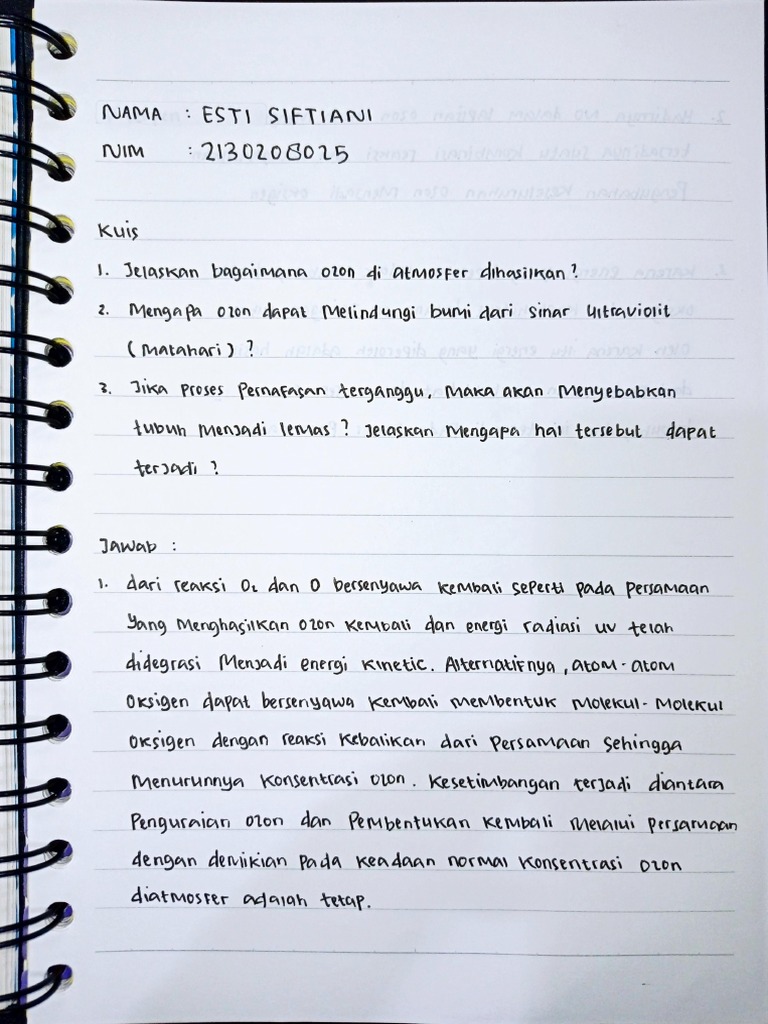 NAMA : ESTI SIFTIANI
NIM : 2130208025
Kuis
1. Jelaskan bagaimana ozon di atmosfer dihasilkan?
2. Mengapa ozon dapat melindungi bumi dari sinar ultraviolit
(matahari) ?
3. Jika proses pernafasan terganggu, maka akan menyebabkan
tubuh menjadi lemas ? Jelaskan mengapa hal tersebut dapat
terjadi ?
Jawab :
1. dari reaksi O₂ dan O bersenyawa kembali seperti pada persamaan
yang menghasilkan ozon kembali dan energi radiasi uv telah
didegrasi menjadi energi kinetic. Alternatifnya, atom-atom
oksigen dapat bersenyawa kembali membentuk molekul-molekul
oksigen dengan reaksi kebalikan dari persamaan sehingga
menurunnya konsentrasi ozon. Kesetimbangan terjadi diantara
penguraian ozon dan pembentukan kembali melalui persamaan
dengan demikian pada keadaan normal konsentrasi ozon
diatmosfer adalah tetap.